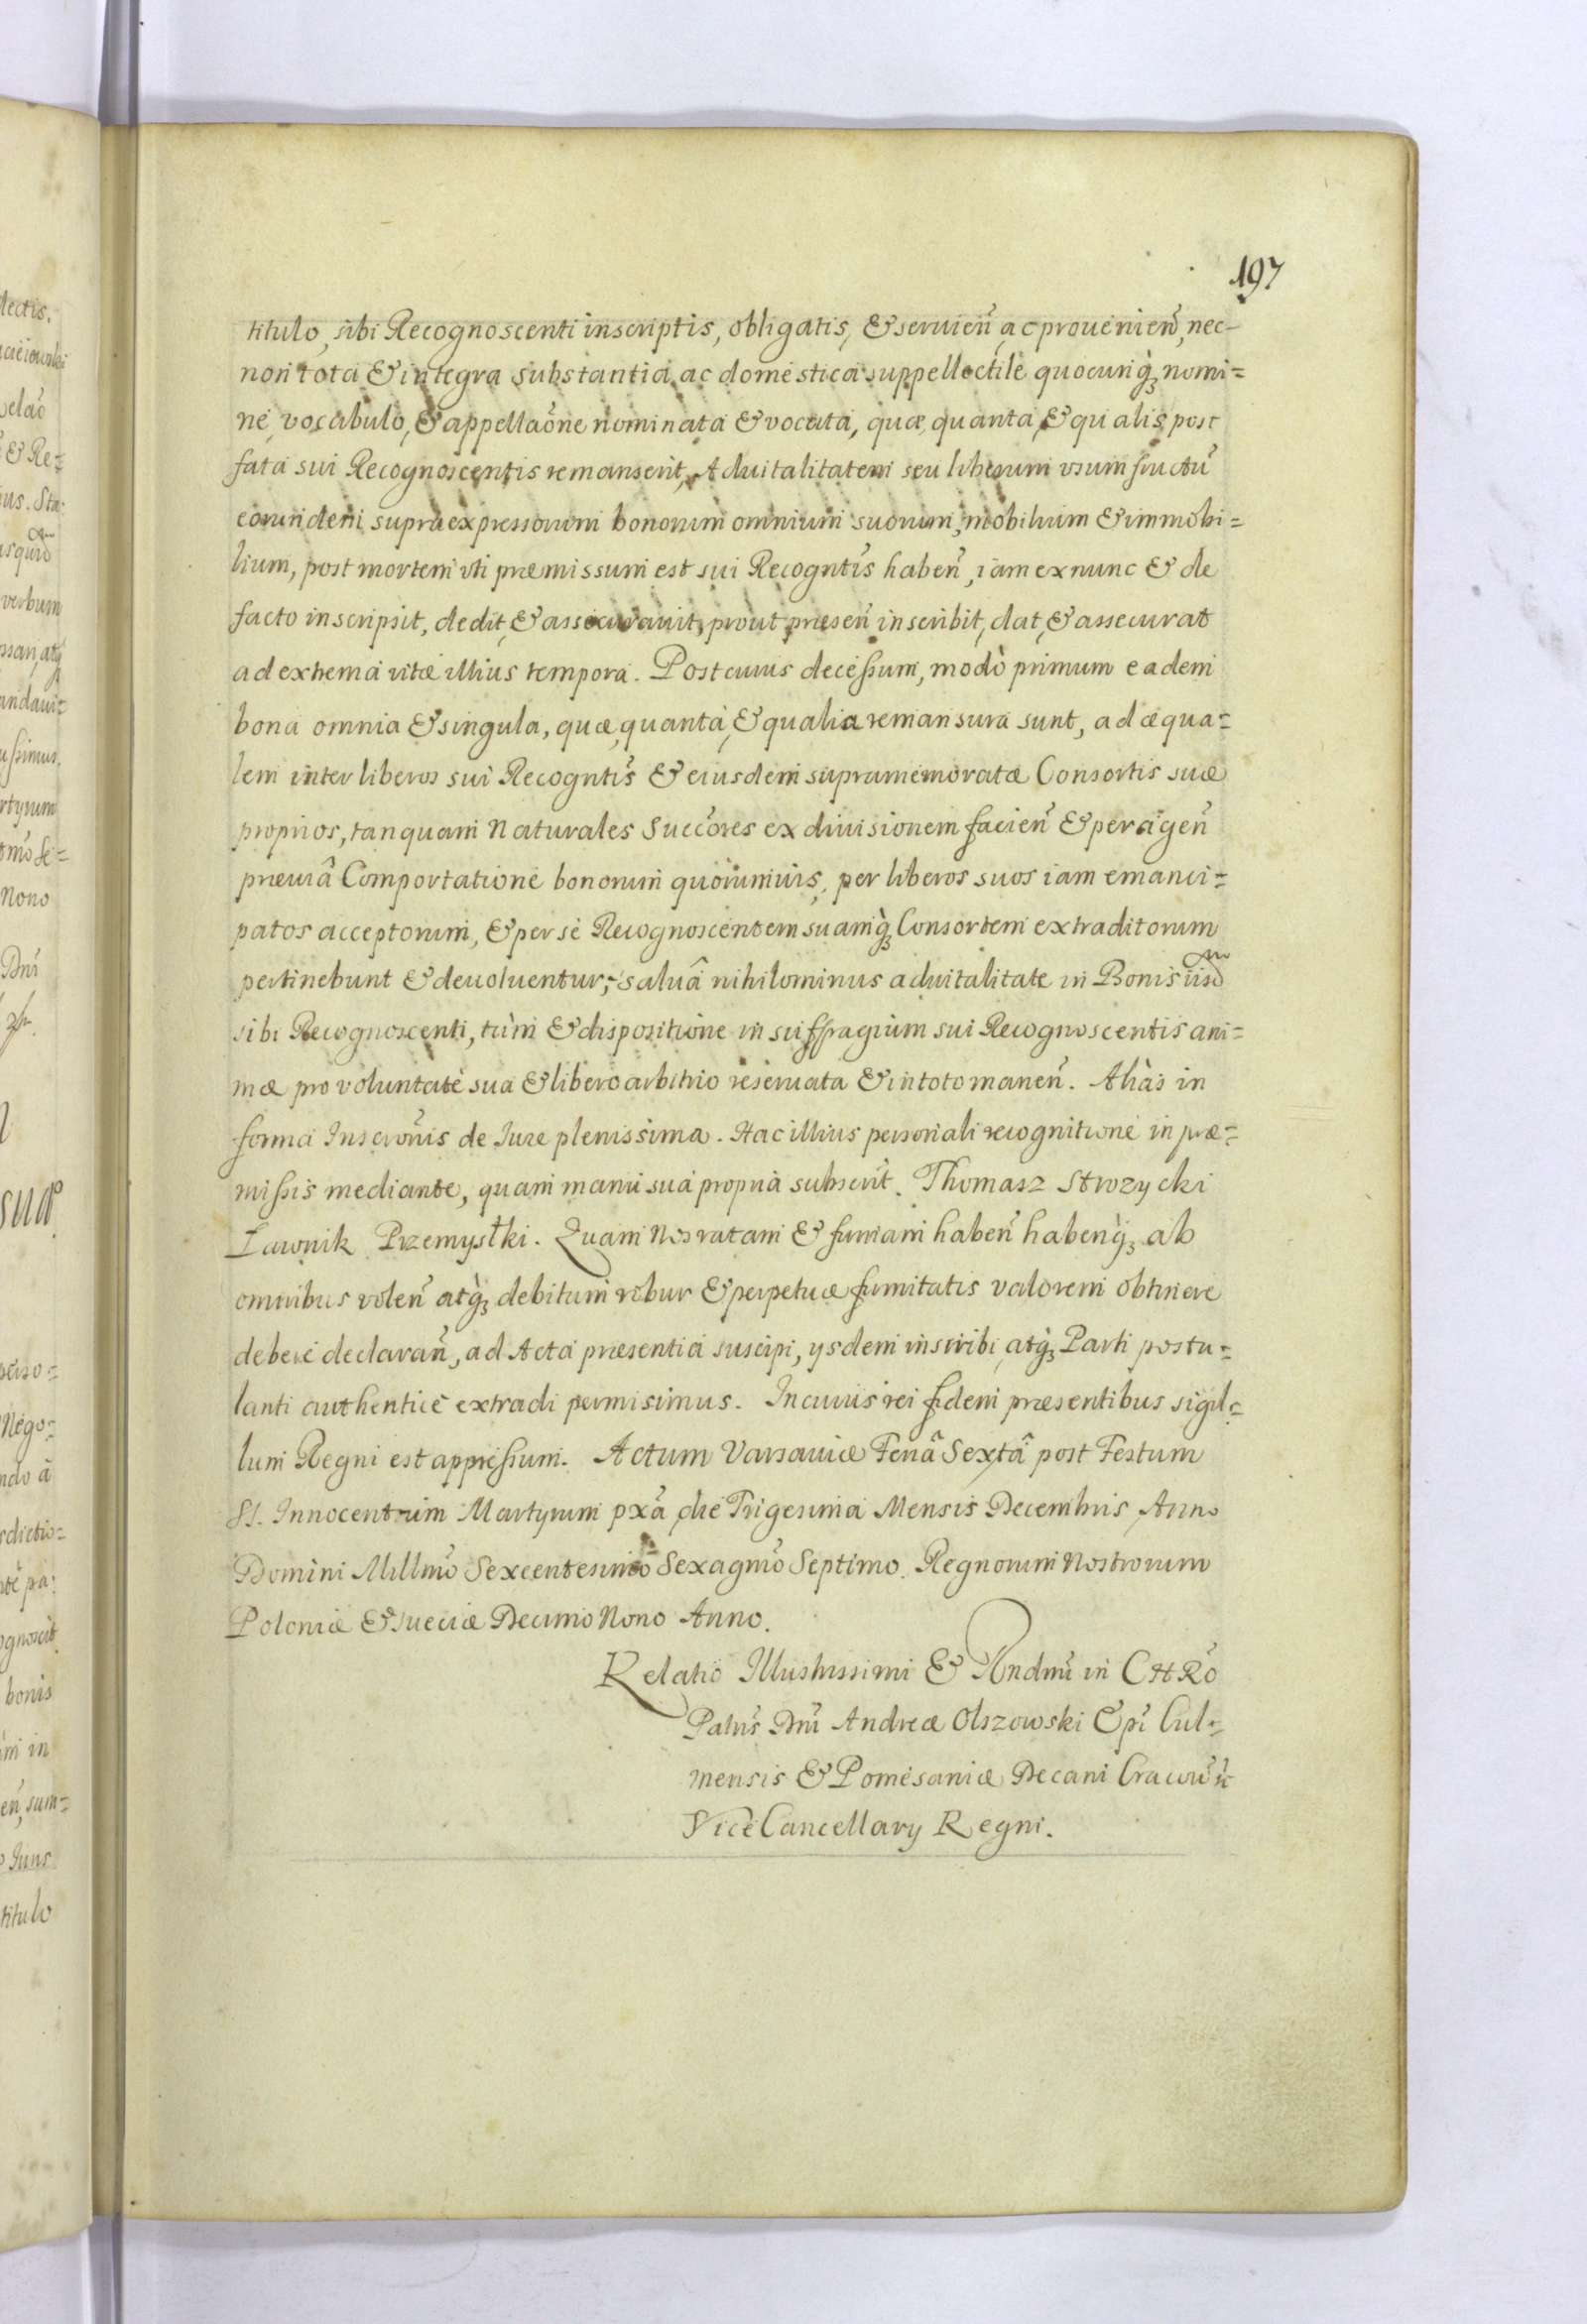 197
titulo, sibi Recognoscenti inscriptis, obligatis, & seruieñ, ac prouenieñ, nec-
non tota & integra substantia, ac domestica suppellectile quocunq́ʒ nomi=
ne, vocabulo, & appellaõne nominata & vocata, quæ, quanta, & qualis post
fata sui Recognoscentis remanserit, Aduitalitatem seu liberum vsumfructũ
eorundem supra expressorum bonorum omnium suorum, mobilium & immobi=
lium, post mortem vti præmissum est sui Recogntĩs habeñ, iam ex nunc & de
facto inscripsit, dedit, & assecurauit, prout præseñ inscribit, dat, & assecurat
ad extrema vitæ illius tempora. Post cuius decessum, modò primum eadem
bona omnia & singula, quæ, quanta, & qualia remansura sunt, ad æqua=
lem inter liberos sui Recogntĩs & eiusdem supramemoratæ Consortis suæ
proprios, tanquam Naturales Succõres exdiuisionem facieñ & perageñ
præuiâ Comportatione bonorum quorumuis, per liberos suos iam emanci=
patos acceptorum, & per se Recognoscentem suamq́ʒ Consortem extraditorum
pertinebunt & deuoluentur; saluâ nihilominus aduitalitate in Bonis iisd
sibi Recognoscenti, tùm & dispositione in suffragium sui Recognoscentis ani=
mæ pro voluntate sua & libero arbitrio reseruata & in toto maneñ. Aliàs in
forma Inscrõnis de Iure plenissima. Hac illius personali recognitione in præ=
missis mediante, quam manu sua propria subscrit̃. Thomasz Strozycki
Ławnik Przemyslki. Quam Nos ratam & firmam habeñ habeñq́ʒ ab
omnibus voleñ atq́ʒ debitum robur & perpetuæ firmitatis valorem obtinere
debere declarañ, ad Acta præsentia suscipi, ysdem inscribi, atq́ʒ Parti postu=
lanti authenticè extradi permisimus. In cuius rei fidem præsentibus sigil=
lum Regni est appressum. Actum Varsauiæ Feriâ Sextâ post Festum
SS. Innocentium Martyrum pxã, die Trigesima Mensis Decembris Anno
Domini Millmõ Sexcentesimo Sexagmõ Septimo. Regnorum Nostrorum
Poloniæ & Sueciæ Decimo Nono Anno.
Relatio Illustrissimi & Rndmĩ in CHRõ
Patrĩs Dnĩ Andreæ Olszowski Epĩ Cul=
mensis & Pomesaniæ Decani
ViceCancellary Regni.